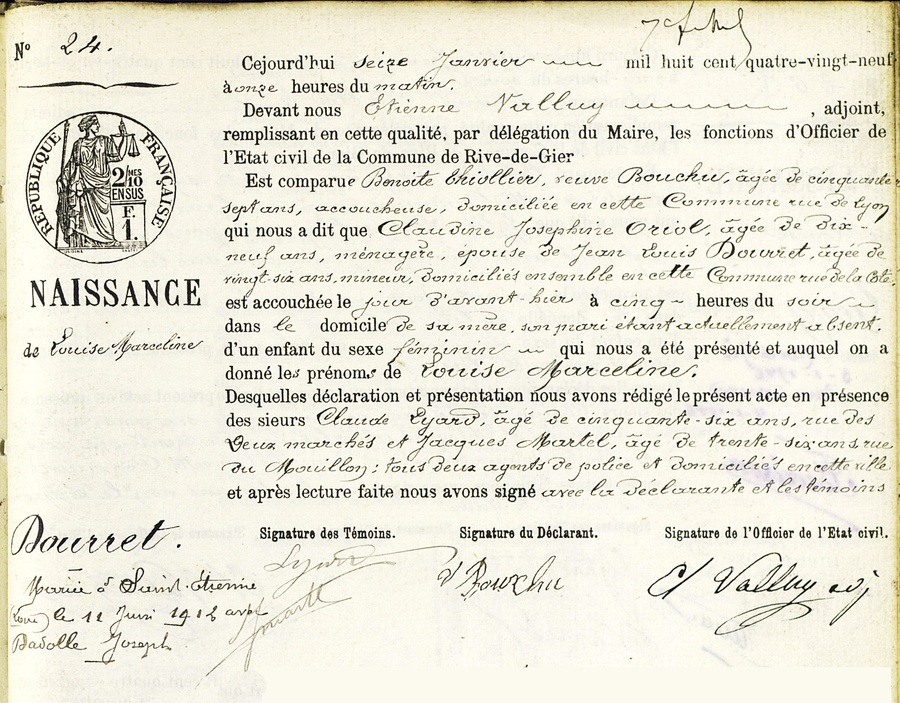 Nº 24.
Cejourd'hui seize Janvier mil huit cent quatre-vingt-neuf
à onze heures du matin.
Devant nous Etienne Valluy , adjoint,
remplissant en cette qualité, par délégation du Maire, les fonctions d'Officier de
l'Etat civil de la Commune de Rive-de-Gier
Est comparue Benoite Thiollier, veuve Bouchu, âgée de cinquante
sept ans, accoucheuse, domiciliée en cette Commune rue de Lyon
qui nous a dit que Claudine Josephine Oriol, âgée de dix-
neuf ans, ménagère, épouse de Jean Louis Dourret, âgée de
vingt-six ans, mineur, domiciliés ensemble en cette Commune rue de la Côte
est accouchée le jour d'avant-hier à cinq heures du soir
dans le domicile de sa mère, son mari étant actuellement absent.
d'un enfant du sexe féminin qui nous a été présenté et auquel on a
donné les prénoms de Louise Marceline.
Desquelles déclaration et présentation nous avons rédigé le présent acte en présence
des sieurs Claude Eyard, âgé de cinquante-six ans, rue des
Deux marchés et Jacques Martel, âgé de trente-six ans, rue
du Mouillon; tous deux agents de police et domiciliés en cette ville
et après lecture faite nous avons signé avec la déclarante et les témoins
REPUBLIQUE FRANÇAISE
2/10 MES
EN SUS
F.
1.
NAISSANCE
de Louise Marceline
Dourret.
Mariée à Saint-Etienne
(Loire) le 11 Juin 1912 avec
Badolle Joseph
Signature des Témoins.
Signature du Déclarant.
Vve Bouchu
Signature de l'Officier de l'Etat civil.
Et Valluy adj